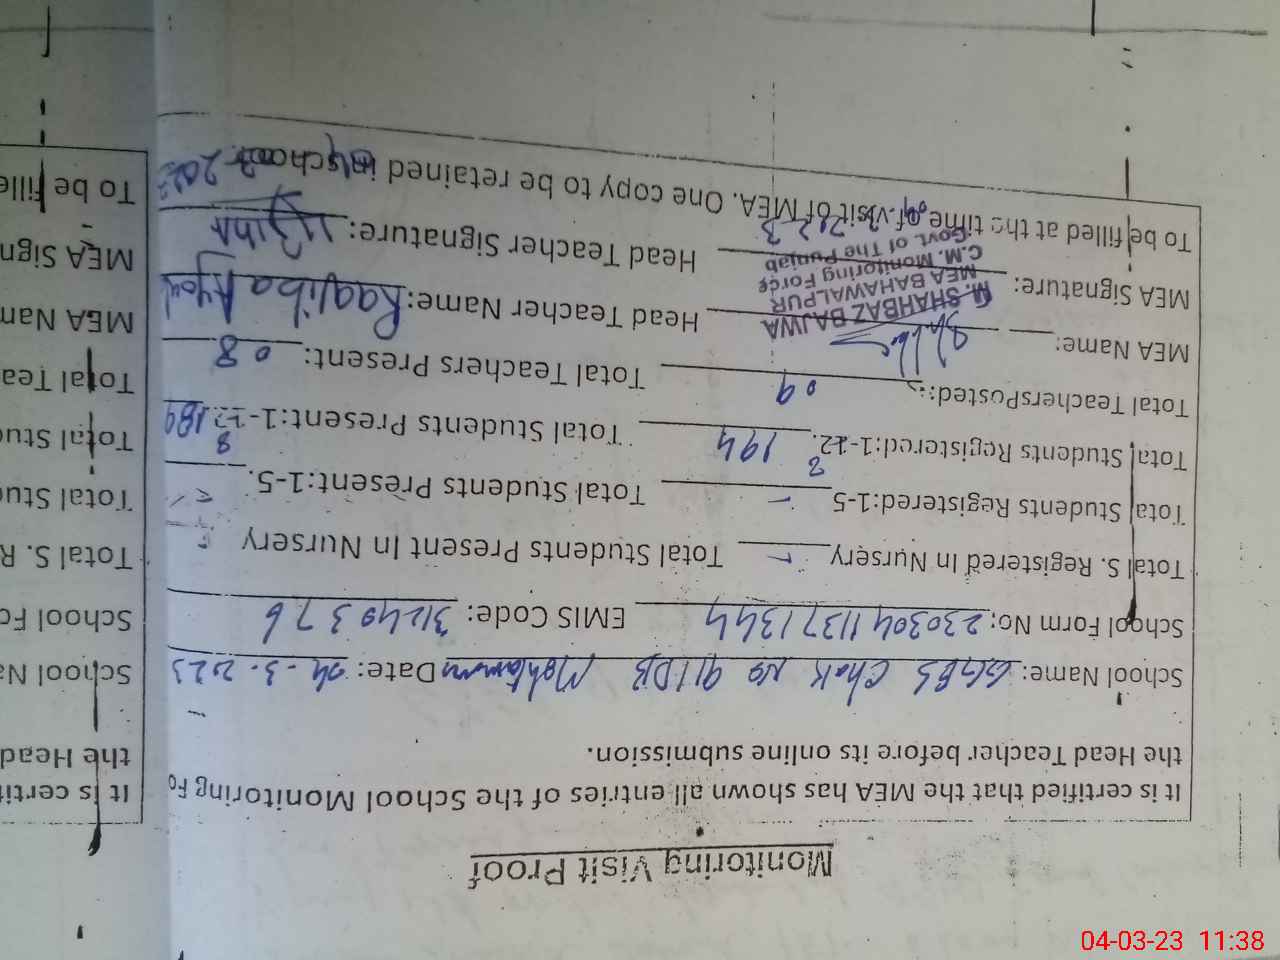 Monitoring Visit Proof
It is certified that the MEA has shown all entries of the School Monitoring Fo
the Head Teacher before its online submission.
School Name: GGES Chak No 91/DB Date: 04-3-2023
School Form No: 23030411371344 EMIS Code: 31240376
Total S. Registered In Nursery - Total Students Present In Nursery
Total Students Registered:1-5 - Total Students Present:1-5.
Total Students Registered:1-8 194 Total Students Present:1-8 189
Total TeachersPosted: 09 Total Teachers Present: 08
MEA Name: Head Teacher Name: Raqiba Ayoub
M. SHAHBAZ BAJWA
MEA BAHAWALPUR
C.M. Monitoring Force
Govt. of The Punjab
MEA Signature: Head Teacher Signature:
To be filled at the time of visit of MEA. One copy to be retained in school.
It is certif
the Head
School Na
School Fo
Total S. R
Total Stud
Total Stud
Total Tea
MEA Nam
MEA Sign
To be fille
04-03-23 11:38